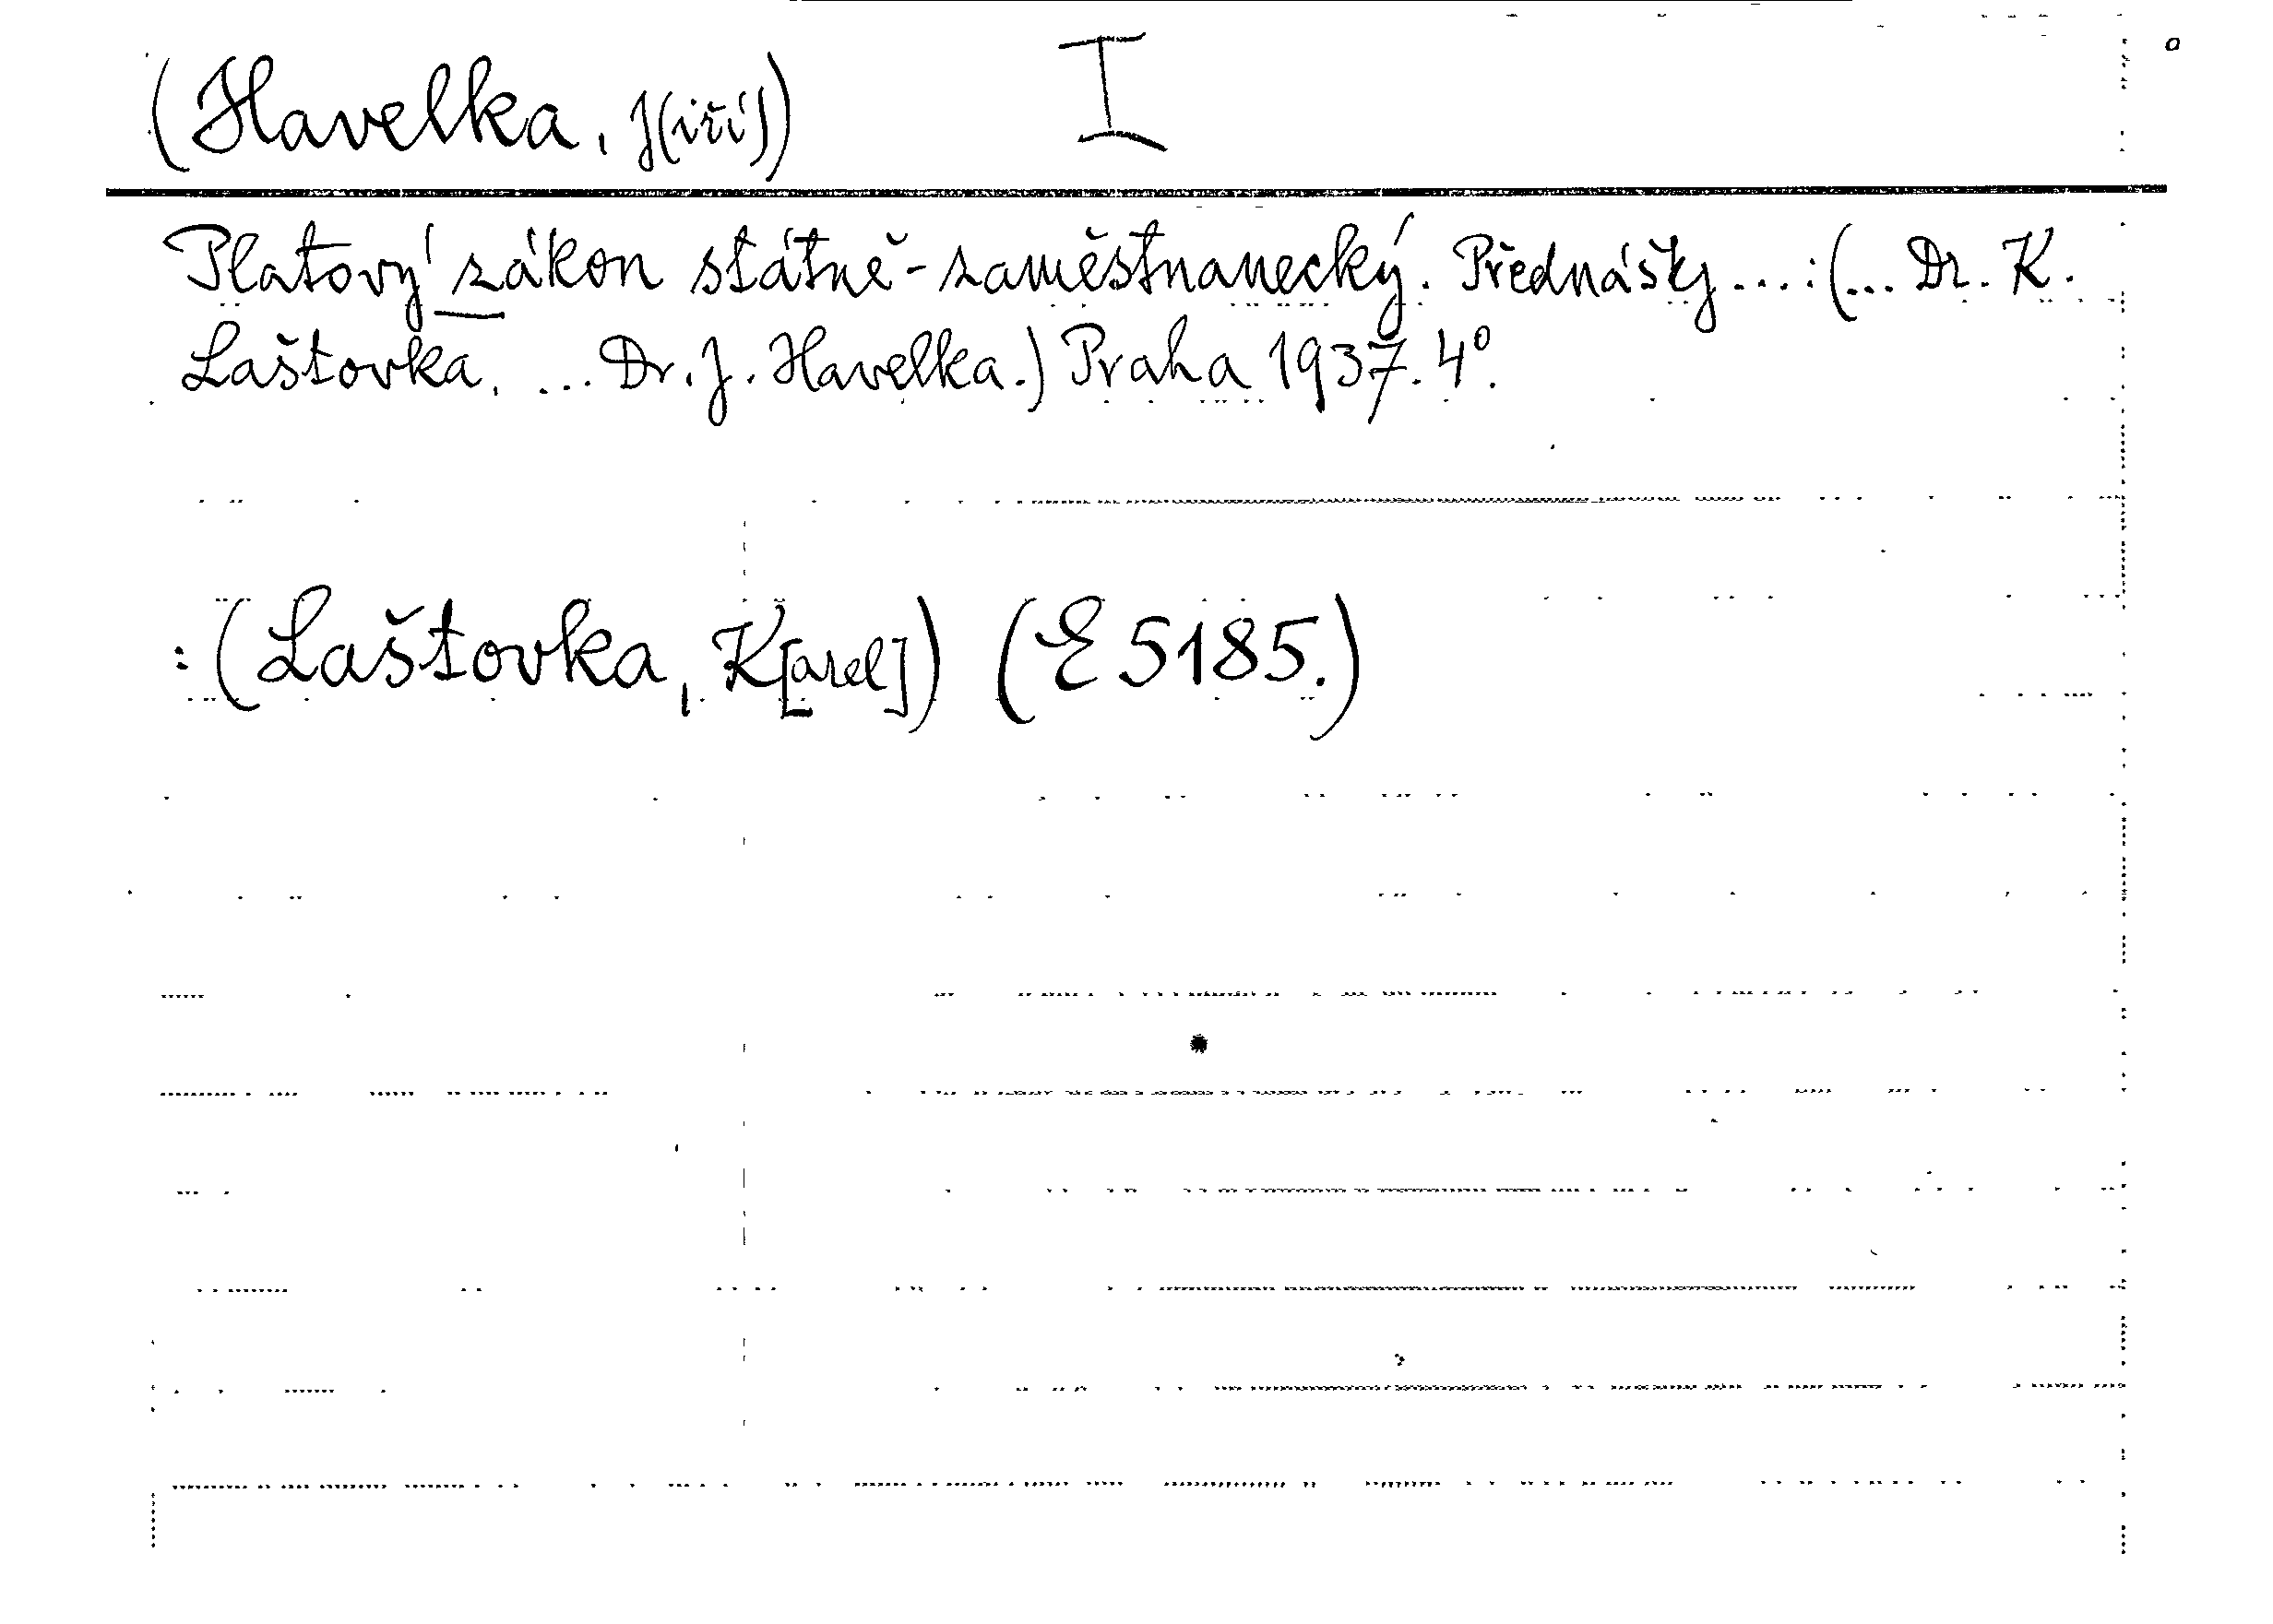 (Havelka, J(iří)) I
Platový zákon státně-zaměstnanecký. Přednášky...:(... Dr. K.
Laštovka, ... Dr. J. Havelka.) Praha 1937. 4°.
:(Laštovka, K[arel]) (E 5185.)